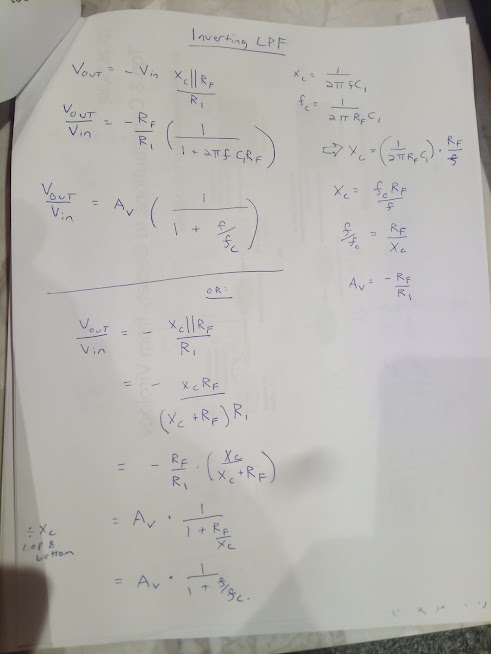 Inverting LPF
Vout = - Vin Xc||RF / R1
Vout / Vin = - RF / R1 ( 1 / 1 + 2πf C1RF )
Vout / Vin = Av ( 1 / 1 + f/fc )
Xc = 1 / 2πfC1
fc = 1 / 2πRFC1
⇒ Xc = ( 1 / 2πRFC1 ) · RF / f
Xc = fcRF / f
f/fc = RF / Xc
Av = -RF / R1
OR:
Vout / Vin = - Xc||RF / R1
= - XcRF / (Xc + RF) R1
= - RF / R1 · ( Xc / Xc + RF )
÷ Xc
top &
bottom
= Av · 1 / 1 + RF/Xc
= Av · 1 / 1 + f/fc.